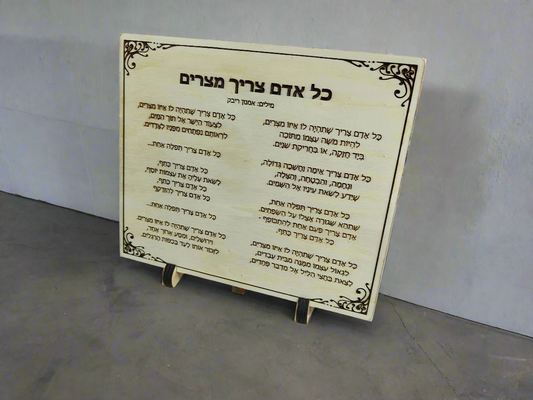 כל אדם צריך מצרים
מילים: אמנון ריבק
כָּל אָדָם צָרִיךְ שֶׁתִּהְיֶה לוֹ אֵיזוֹ מִצְרַיִם,
לִהְיוֹת מֹשֶׁה עַצְמוֹ מִתּוֹכָהּ
בְּיָד חֲזָקָה, אוֹ בַּחֲרִיקַת שִׁנַּיִם.
כָּל אָדָם צָרִיךְ אֵימָה וַחֲשֵׁכָה גְּדוֹלָה,
וְנֶחָמָה, וְהַבְטָחָה, וְהַצָּלָה,
שֶׁיֵּדַע לָשֵׂאת עֵינָיו אֶל הַשָּׁמַיִם.
כָּל אָדָם צָרִיךְ תְּפִלָּה אַחַת,
שֶׁתְּהֵא שְׁגוּרָה אֶצְלוֹ עַל הַשְּׂפָתַיִם.
אָדָם צָרִיךְ פַּעַם אַחַת לְהִתְכּוֹפֵף -
כָּל אָדָם צָרִיךְ כָּתֵף.
כָּל אָדָם צָרִיךְ שֶׁתִּהְיֶה לוֹ אֵיזוֹ מִצְרַיִם,
לִגְאוֹל עַצְמוֹ מִמֶּנָּה מִבֵּית עֲבָדִים,
לָצֵאת בַּחֲצִי הַלַּיִל אֶל מִדְבַּר פְּחָדִים,
כָּל אָדָם צָרִיךְ שֶׁתִּהְיֶה לוֹ אֵיזוֹ מִצְרַיִם,
לִצְעוֹד הַיְשֵׁר אֶל תּוֹךְ הַמַּיִם,
לִרְאוֹתָם נִפְתָּחִים מִפָּנָיו לִצְדָדִים.
כָּל אָדָם צָרִיךְ תְּפִלָּה אַחַת...
כָּל אָדָם צָרִיךְ כָּתֵף,
לָשֵׂאת עָלֶיהָ אֶת עַצְמוֹת יוֹסֵף,
כָּל אָדָם צָרִיךְ כָּתֵף,
כָּל אָדָם צָרִיךְ לְהִזְדַּקֵּף
כָּל אָדָם צָרִיךְ תְּפִלָּה אַחַת...
כָּל אָדָם צָרִיךְ שֶׁתִּהְיֶה לוֹ אֵיזוֹ מִצְרַיִם.
וִירוּשָׁלַיִם, וּמַסָּע אָרֹךְ אֶחָד,
לִזְכּוֹר אוֹתוֹ לָעַד בְּכַפּוֹת הָרַגְלַיִם.